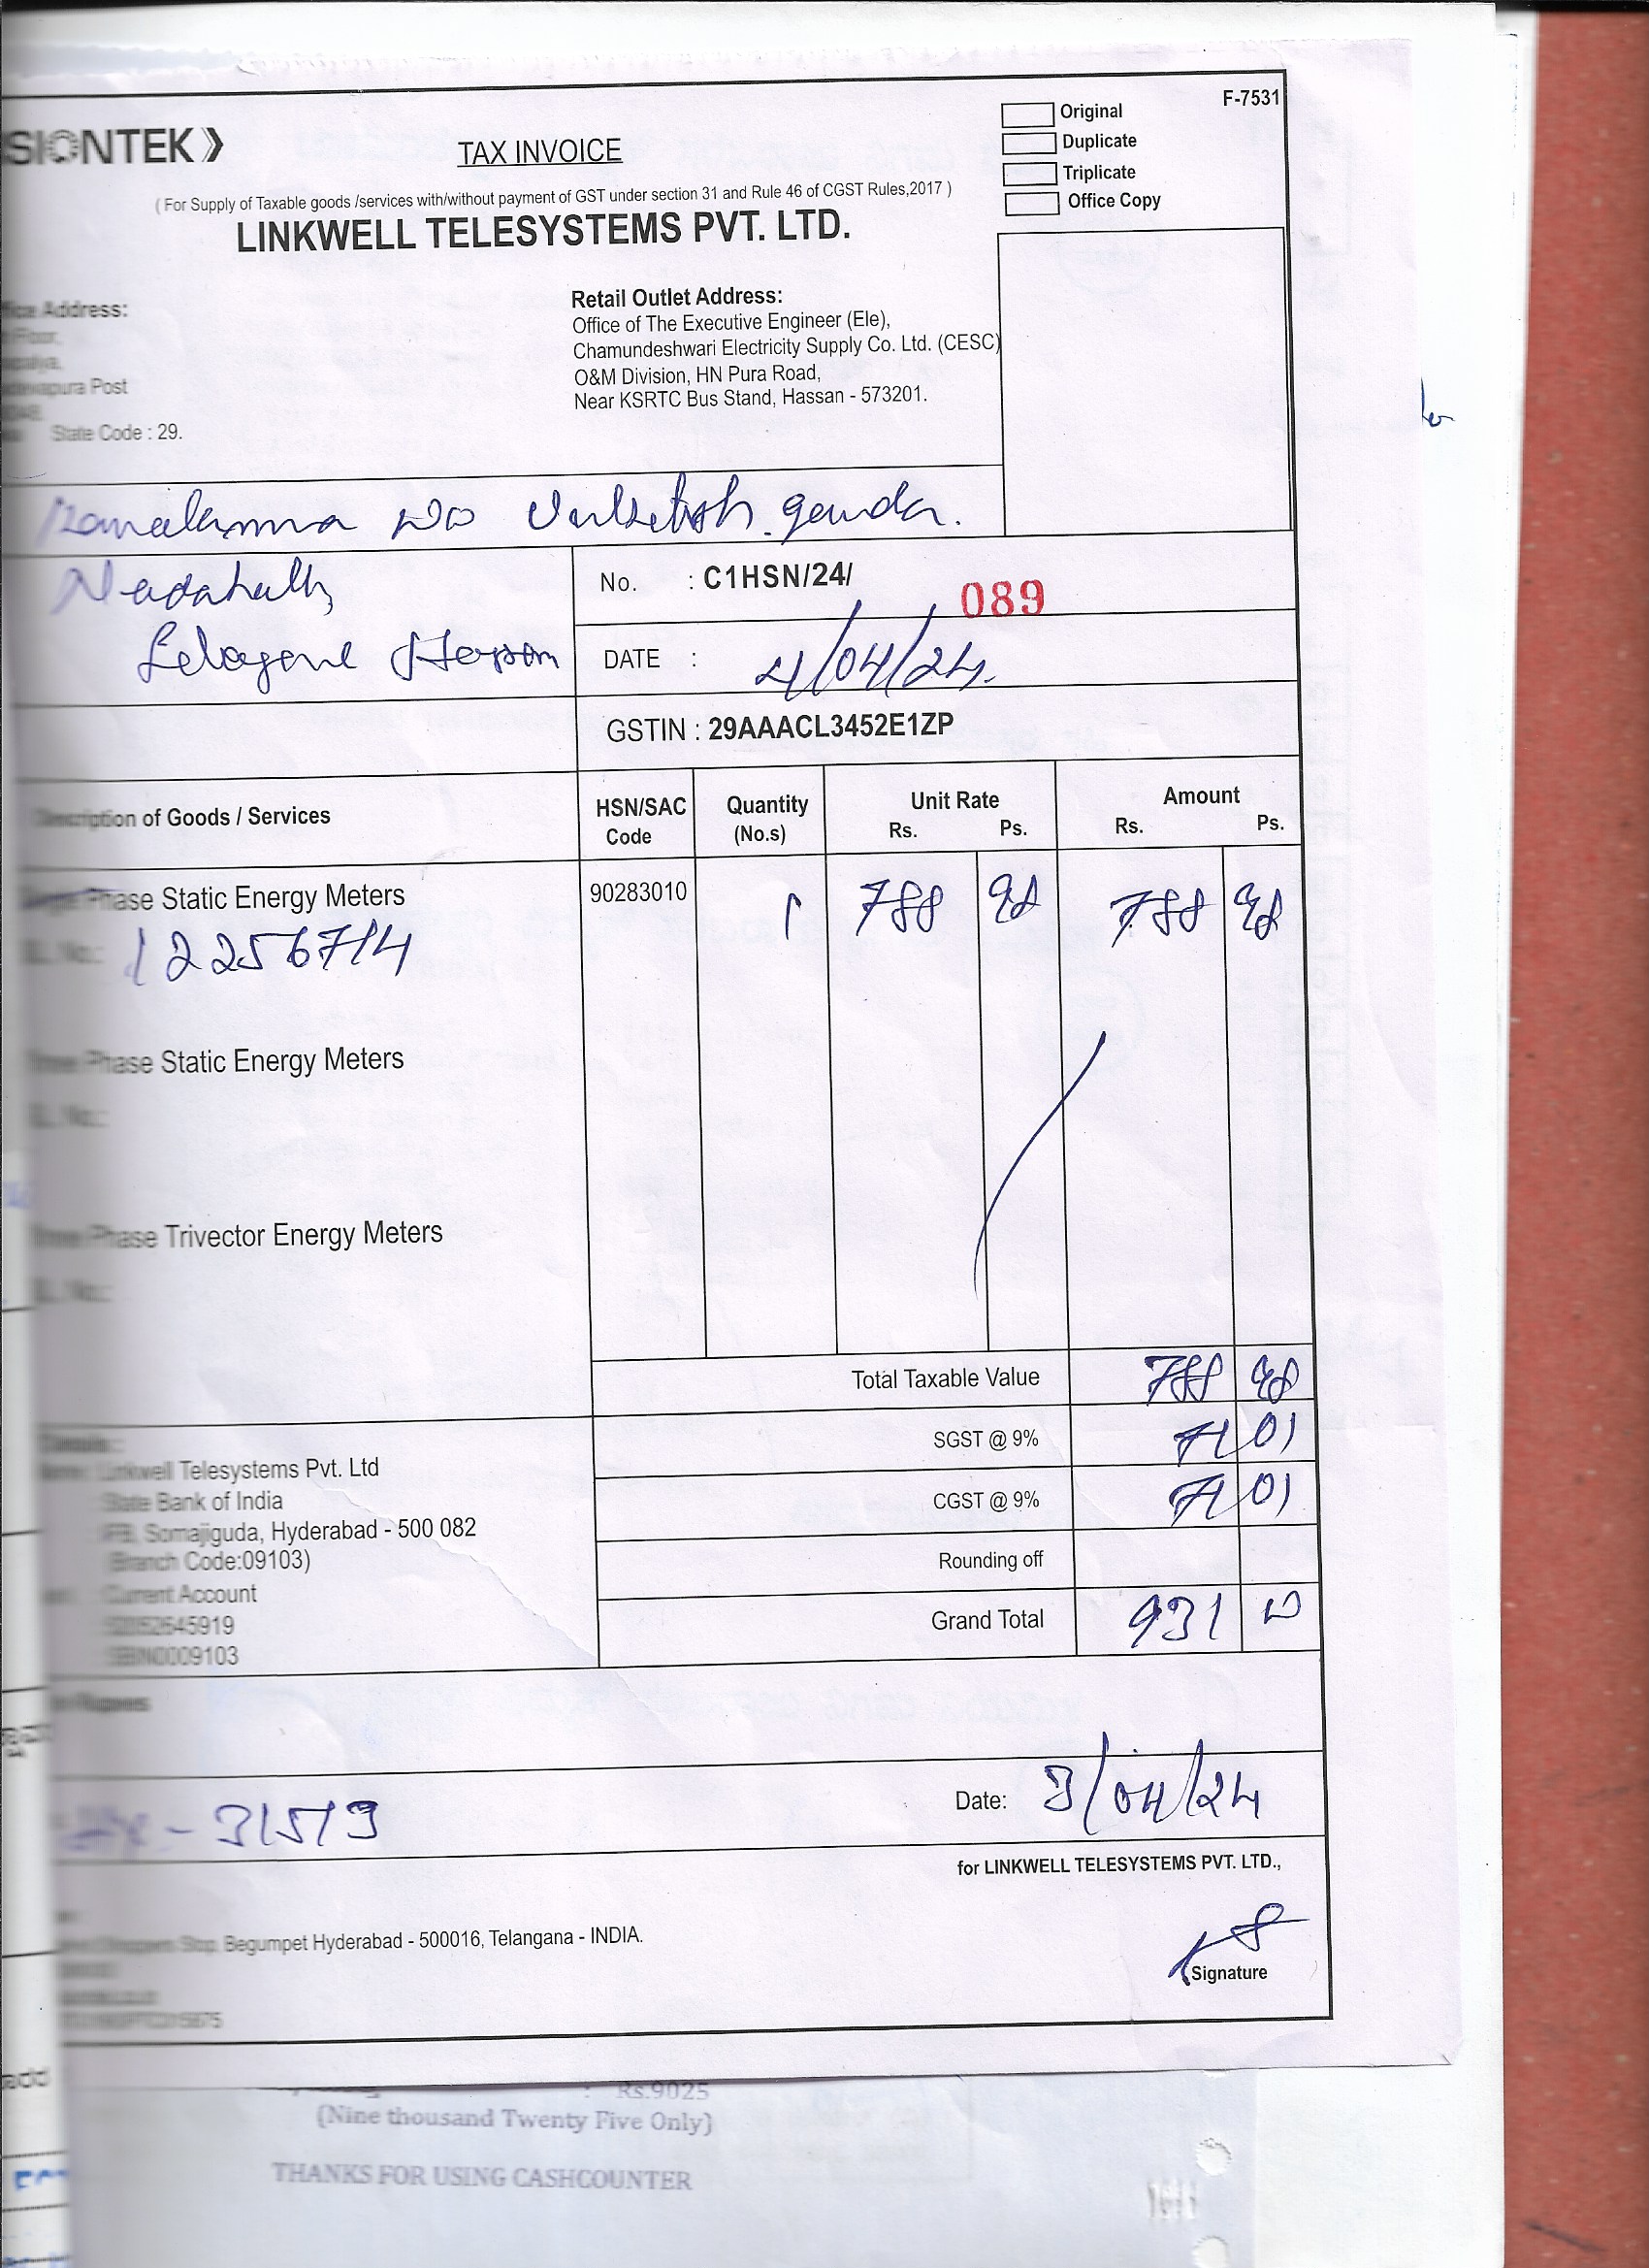 F-7531
Original
Duplicate
Triplicate
Office Copy
SIONTEK
TAX INVOICE
( For Supply of Taxable goods /services with/without payment of GST under section 31 and Rule 46 of CGST Rules,2017 )
LINKWELL TELESYSTEMS PVT. LTD.
Address:
Floor,
Post
State Code : 29.
Retail Outlet Address:
Office of The Executive Engineer (Ele),
Chamundeshwari Electricity Supply Co. Ltd. (CESC)
O&M Division, HN Pura Road,
Near KSRTC Bus Stand, Hassan - 573201.
gowda.
No. : C1HSN/24/ 089
DATE : 4/04/24.
GSTIN : 29AAACL3452E1ZP
Description of Goods / Services HSN/SAC Code Quantity (No.s) Unit Rate Rs. Ps. Amount Rs. Ps.
Phase Static Energy Meters 90283010 1 788 98 788 98
SL. No.: 12256714
Phase Static Energy Meters
SL. No.:
Phase Trivector Energy Meters
SL. No.:
Total Taxable Value 788 98
SGST @ 9% 71 01
CGST @ 9% 71 01
Rounding off
Grand Total 931 00
Details :
Linkwell Telesystems Pvt. Ltd
State Bank of India
IFB, Somajiguda, Hyderabad - 500 082
(Branch Code:09103)
Current Account
SBIN0009103
Rupees
- 31513 Date: 3/04/24
for LINKWELL TELESYSTEMS PVT. LTD.,
Begumpet Hyderabad - 500016, Telangana - INDIA.
Signature
: Rs.9025
(Nine thousand Twenty Five Only)
THANKS FOR USING CASHCOUNTER